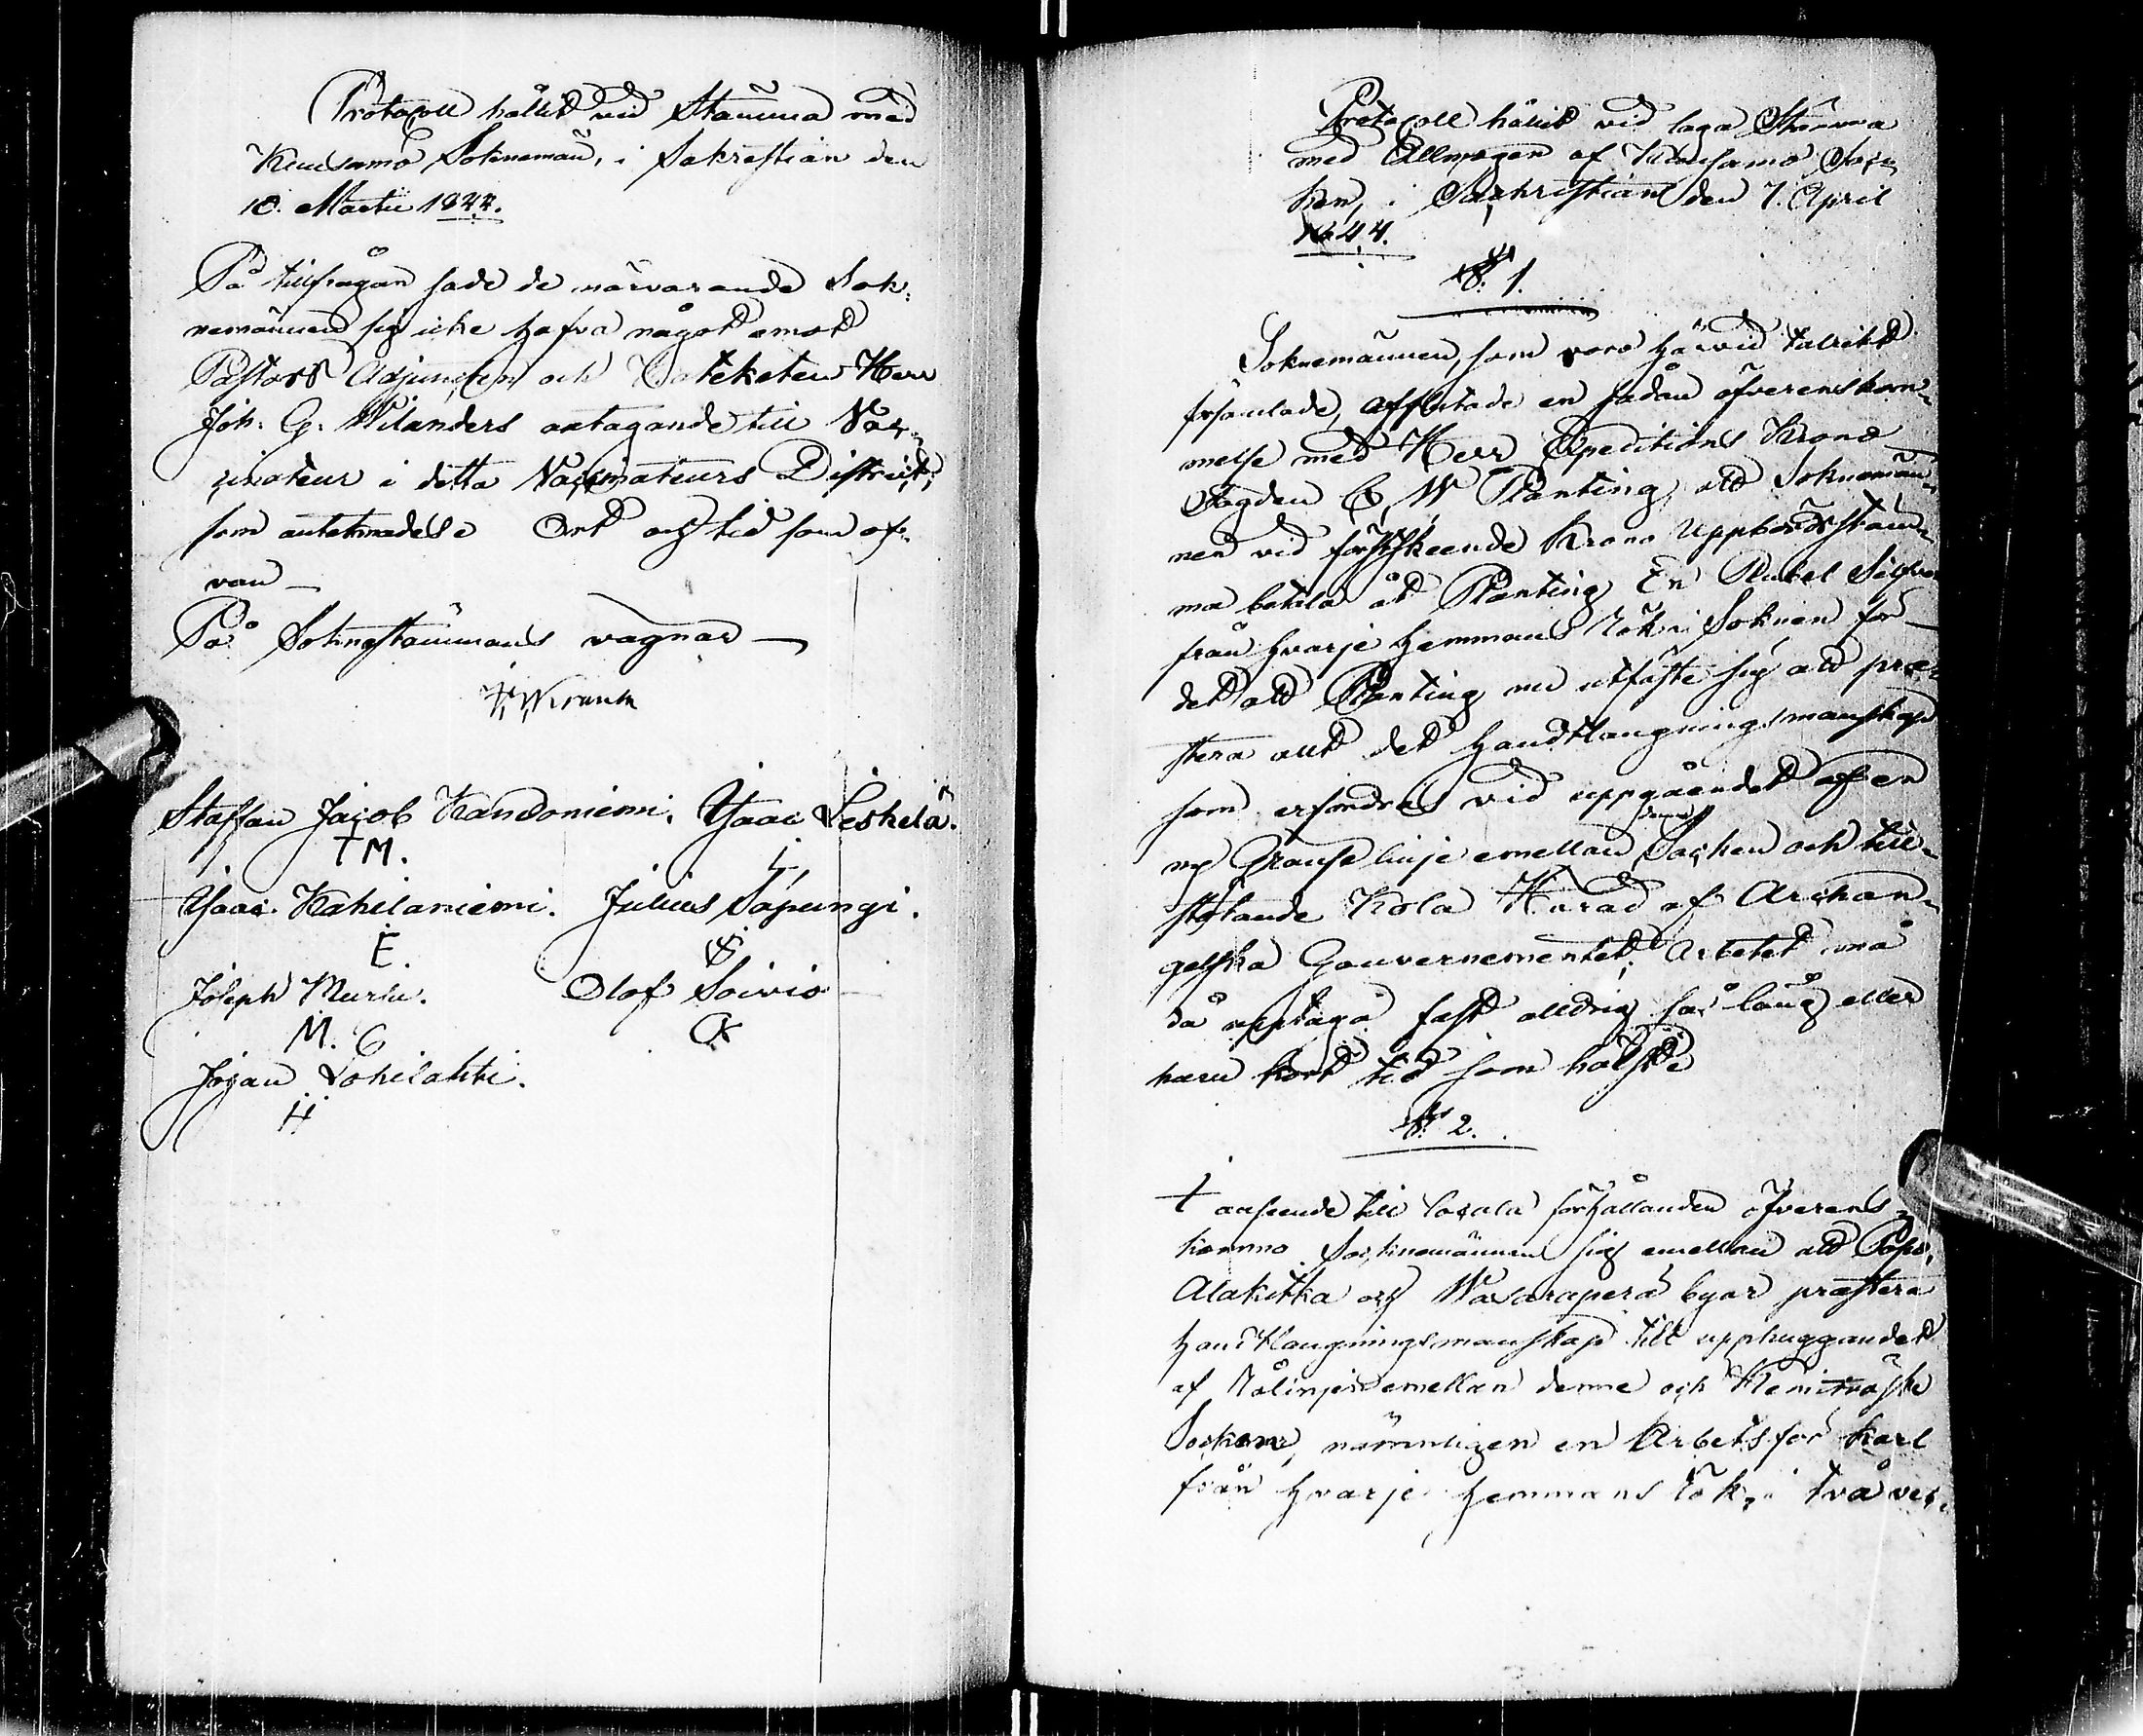 Protocoll hållit vid Stämma med
Kuusamo Soknemän, i Sakrestian den
10. Martii 1844.
På tillfrågan sade de närvarande Sok-
nemännen sig icke hafva något emot
Pastors Adjuncten och Cateketen Herr
Joh. G. Wilanders antagande till Vac-
cinateur i detta Vaccinateurs District,
som antecknades Ort och tid som of-
van —
På Soknestämmans vägnar —
Staffan Jacob Kandoniemi. Isaac Leskelä.
T M.
Isaac Kahilaniemi. Julius Säpungi.
E.
Joseph Murtu. Olof Soivio
M.
Johan Lohilahti.
H
Protocoll hållit vid laga Stämma
med Allmogen af Kuusamo Soc-
ken, i Sackristian den 7. April
1844.
§. 1.
Soknemännen, som voro härvid talrikt
församlade, afslutade en sådan öfverenskom-
melse med Herr Expeditions Krono
Fogden C, W Planting, att Soknemän-
nen vid förstskeende Krono Uppbördsstäm-
ma betala åt Planting En Rubel Silfver
från hvarje Hemmans Rök i Soknen för
det att Planting nu utfäste sig att præ-
stera allt det Handtlangningsmanskap
som erfordras vid uppgåendet af en
ny Gränse linje emellan denna Socken och till-
stötande Kola Härad af Archan-
gelska Gouvernementet. Arbetet må
då upptaga fast alldrig så lång eller
huru kort tid som hälst
§. 2.
I anseende till locala förhållanden öfverens-
kommo Socknemännen sig emellan att Posio,
Alakitka och Wasaraperä byar præstera
Handtlangningsmanskap till upphuggandet
af Rålinjen emellan denne och Kemiträsk
Socknar, nämnligen en Arbetsför Karl
från hvarje Hemmans Rök, i två vec-